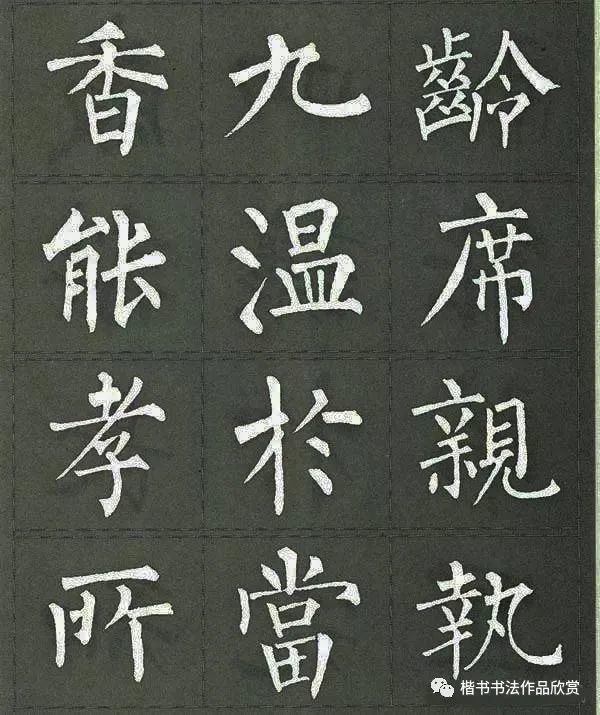 香九齡
能温席
孝於親
所當執
楷书书法作品欣赏